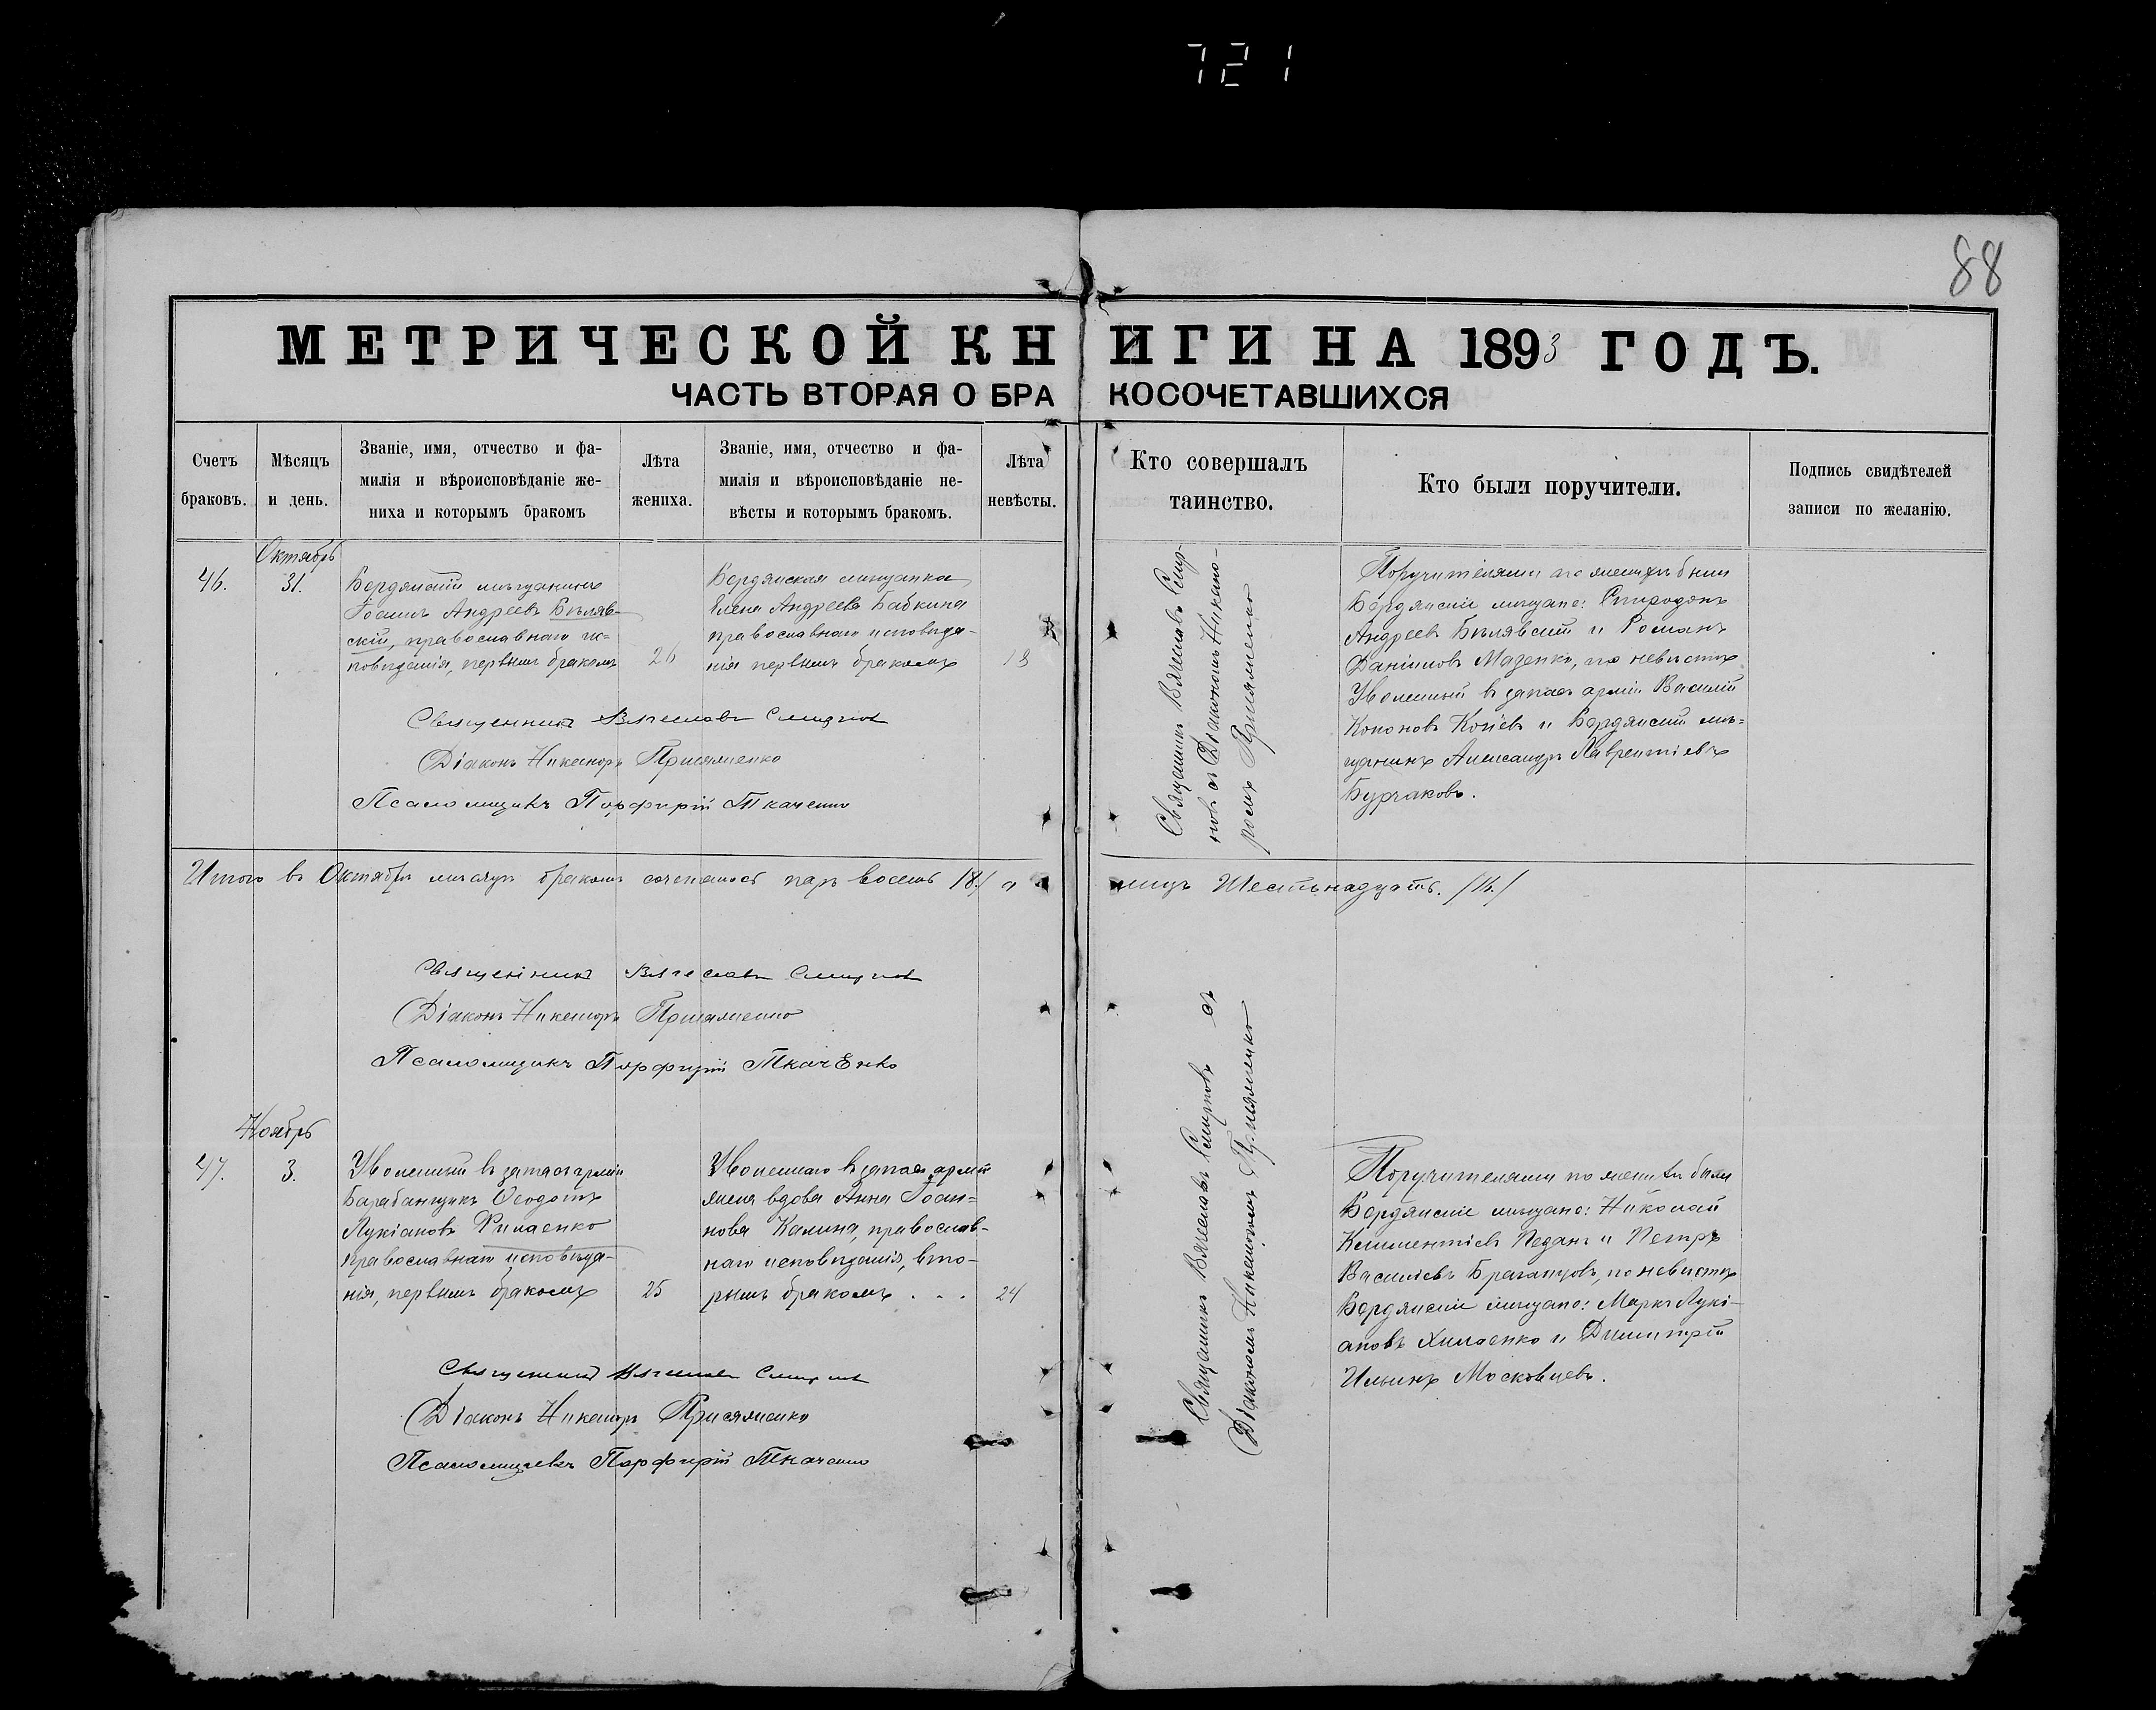 721
88
МЕТРИЧЕСКОЙ КНИГИ НА 1893 ГОДЪ.
ЧАСТЬ ВТОРАЯ О БРАКОСОЧЕТАВШИХСЯ
Счетъ
браковъ.
Мѣсяцъ
и день.
Званіе, имя, отчество и фа-
милія и вѣроисповѣданіе же-
ниха и которымъ бракомъ
Лѣта
жениха.
Званіе, имя, отчество и фа-
милія и вѣроисповѣданіе не-
вѣсты и которымъ бракомъ.
Лѣта
невѣсты.
Кто совершалъ
таинство.
Кто были поручители.
Подпись свидѣтелей
записи по желанію.
Октябрь
46.
31.
Бердянскій мѣщанинъ
Андреевъ Бѣляв-
скій, православнаго ис-
повѣданія, первымъ бракомъ
26
Бердянская мѣщанка
Елена Андреева Бабкина
православнаго исповѣда-
нія первымъ бракомъ
18
Священникъ Вячеславъ Смир-
новъ съ Діакономъ Никано-
ромъ Присяженко
Поручителями по женихѣ были
Бердянскіе мѣщане: Спиридонъ
Андреевъ Бѣлявскій и Романъ
Даніиловъ Мазенко, по невѣстѣ
Уволенный въ запасъ арміи Василій
Кононовъ и Бердянскій мѣ-
щанинъ Александръ Лаврентіевъ
Бурчаковъ.
Священникъ Вячеславъ Смирновъ
Діаконъ Никаноръ Присяженко
Псаломщикъ Порфирій Ткаченко
Итого въ Октябрѣ мѣсяцѣ бракомъ сочеталось паръ восемь /8./ а лицъ Шестьнадцать. /16./
Священникъ Вячеславъ Смирновъ
Діаконъ Никаноръ Присяженко
Псаломщикъ Порфирій Ткаченко
Ноябрь
47.
3.
Уволенный въ запасъ арміи
Барабанщикъ Ѳеодотъ
Лукіановъ
православнаго исповѣда-
нія, первымъ бракомъ
25
Уволеннаго въ запасъ арміи
жена вдова Анна Іоан-
нова Калина, православ-
наго исповѣданія, вто-
рымъ бракомъ . . .
24
Священникъ Вячеславъ Смирновъ съ
Діакономъ Никаноромъ Присяженко
Поручителями по женихѣ были
Бердянскіе мѣщане: Николай
Климентіевъ Педанъ и Петръ
Василіевъ, по невѣстѣ
Бердянскіе мѣщане: Маркъ Лукі-
ановъ и Димитрій
Ильинъ Московцевъ.
Священникъ Вячеславъ Смирновъ
Діаконъ Никаноръ Присяженко
Псаломщикъ Порфирій Ткаченко